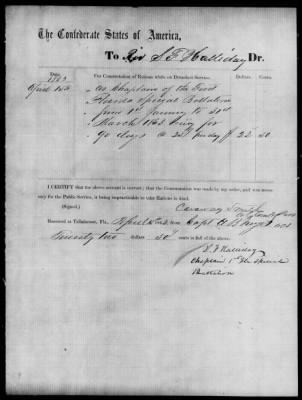 The Confederate States of America,
To Rev S. F. Halliday, Dr.
Date. For Commutation of Rations while on Detached Service. Dollars. Cents.
1863
April 1st As Chaplain of the First
Florida Special Battalion
from 1st January to 31st
March 1863 being for
90 days @ 25c pr day $ 22 50
I CERTIFY that the above account is correct; that the Commutation was made by my order, and was necessary
for the Public Service, being impracticable to take Rations in kind.
(Signed.)
Received at Tallahassee, Fla., April 1863, from Capt
Twenty two dollars 50 cents in full of the above.
S. F. Halliday
Chaplain 1st Fla Special
Battalion